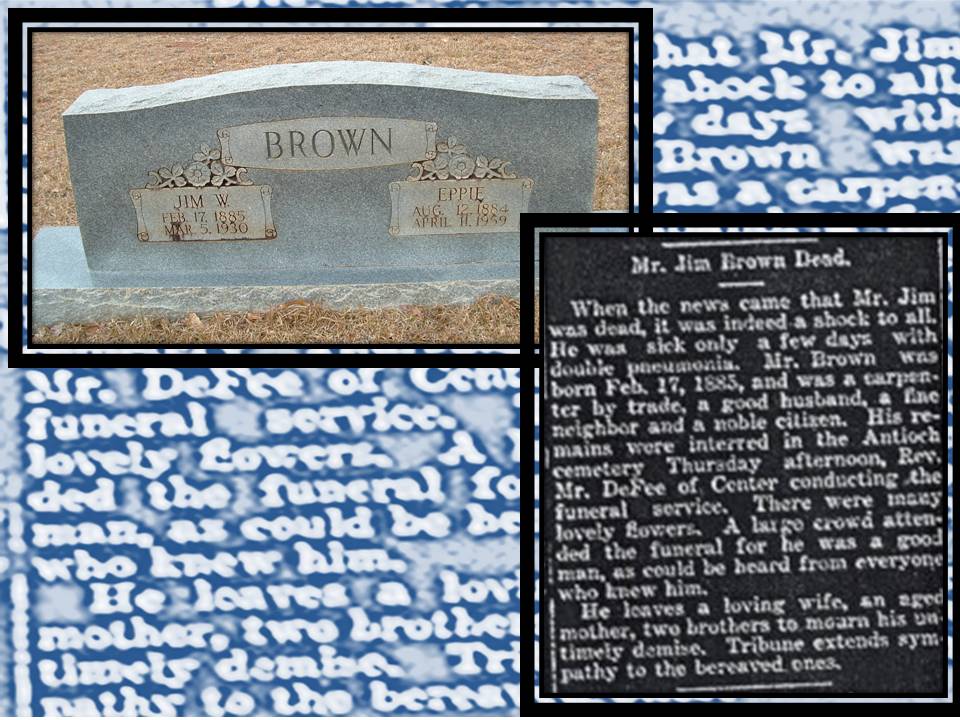 BROWN
JIM W.
FEB. 17, 1885
MAR. 5, 1930
EPPIE
AUG. 12, 1884
APRIL 11, 1959
hat Mr. Jim
shock to all
days with
Brown was
as a carpen
Mr. Jim Brown Dead.
When the news came that Mr. Jim
was dead, it was indeed a shock to all.
He was sick only a few days with
double pneumonia. Mr. Brown was
born Feb. 17, 1885, and was a carpen-
ter by trade, a good husband, a fine
neighbor and a noble citizen. His re-
mains were interred in the Antioch
cemetery Thursday afternoon, Rev.
Mr. DeFee of Center conducting the
funeral service. There were many
lovely flowers. A large crowd atten-
ded the funeral for he was a good
man, as could be heard from everyone
who knew him.
He leaves a loving wife, an aged
mother, two brothers to mourn his un-
timely demise. Tribune extends sym
pathy to the bereaved ones.
Mr. DeFee of Cente
funeral service.
lovely flowers. A
ded the funeral fo
man, as could be he
who knew him.
He leaves a lovi
mother, two brothe
timely demise. Tri
pathy to the bereav